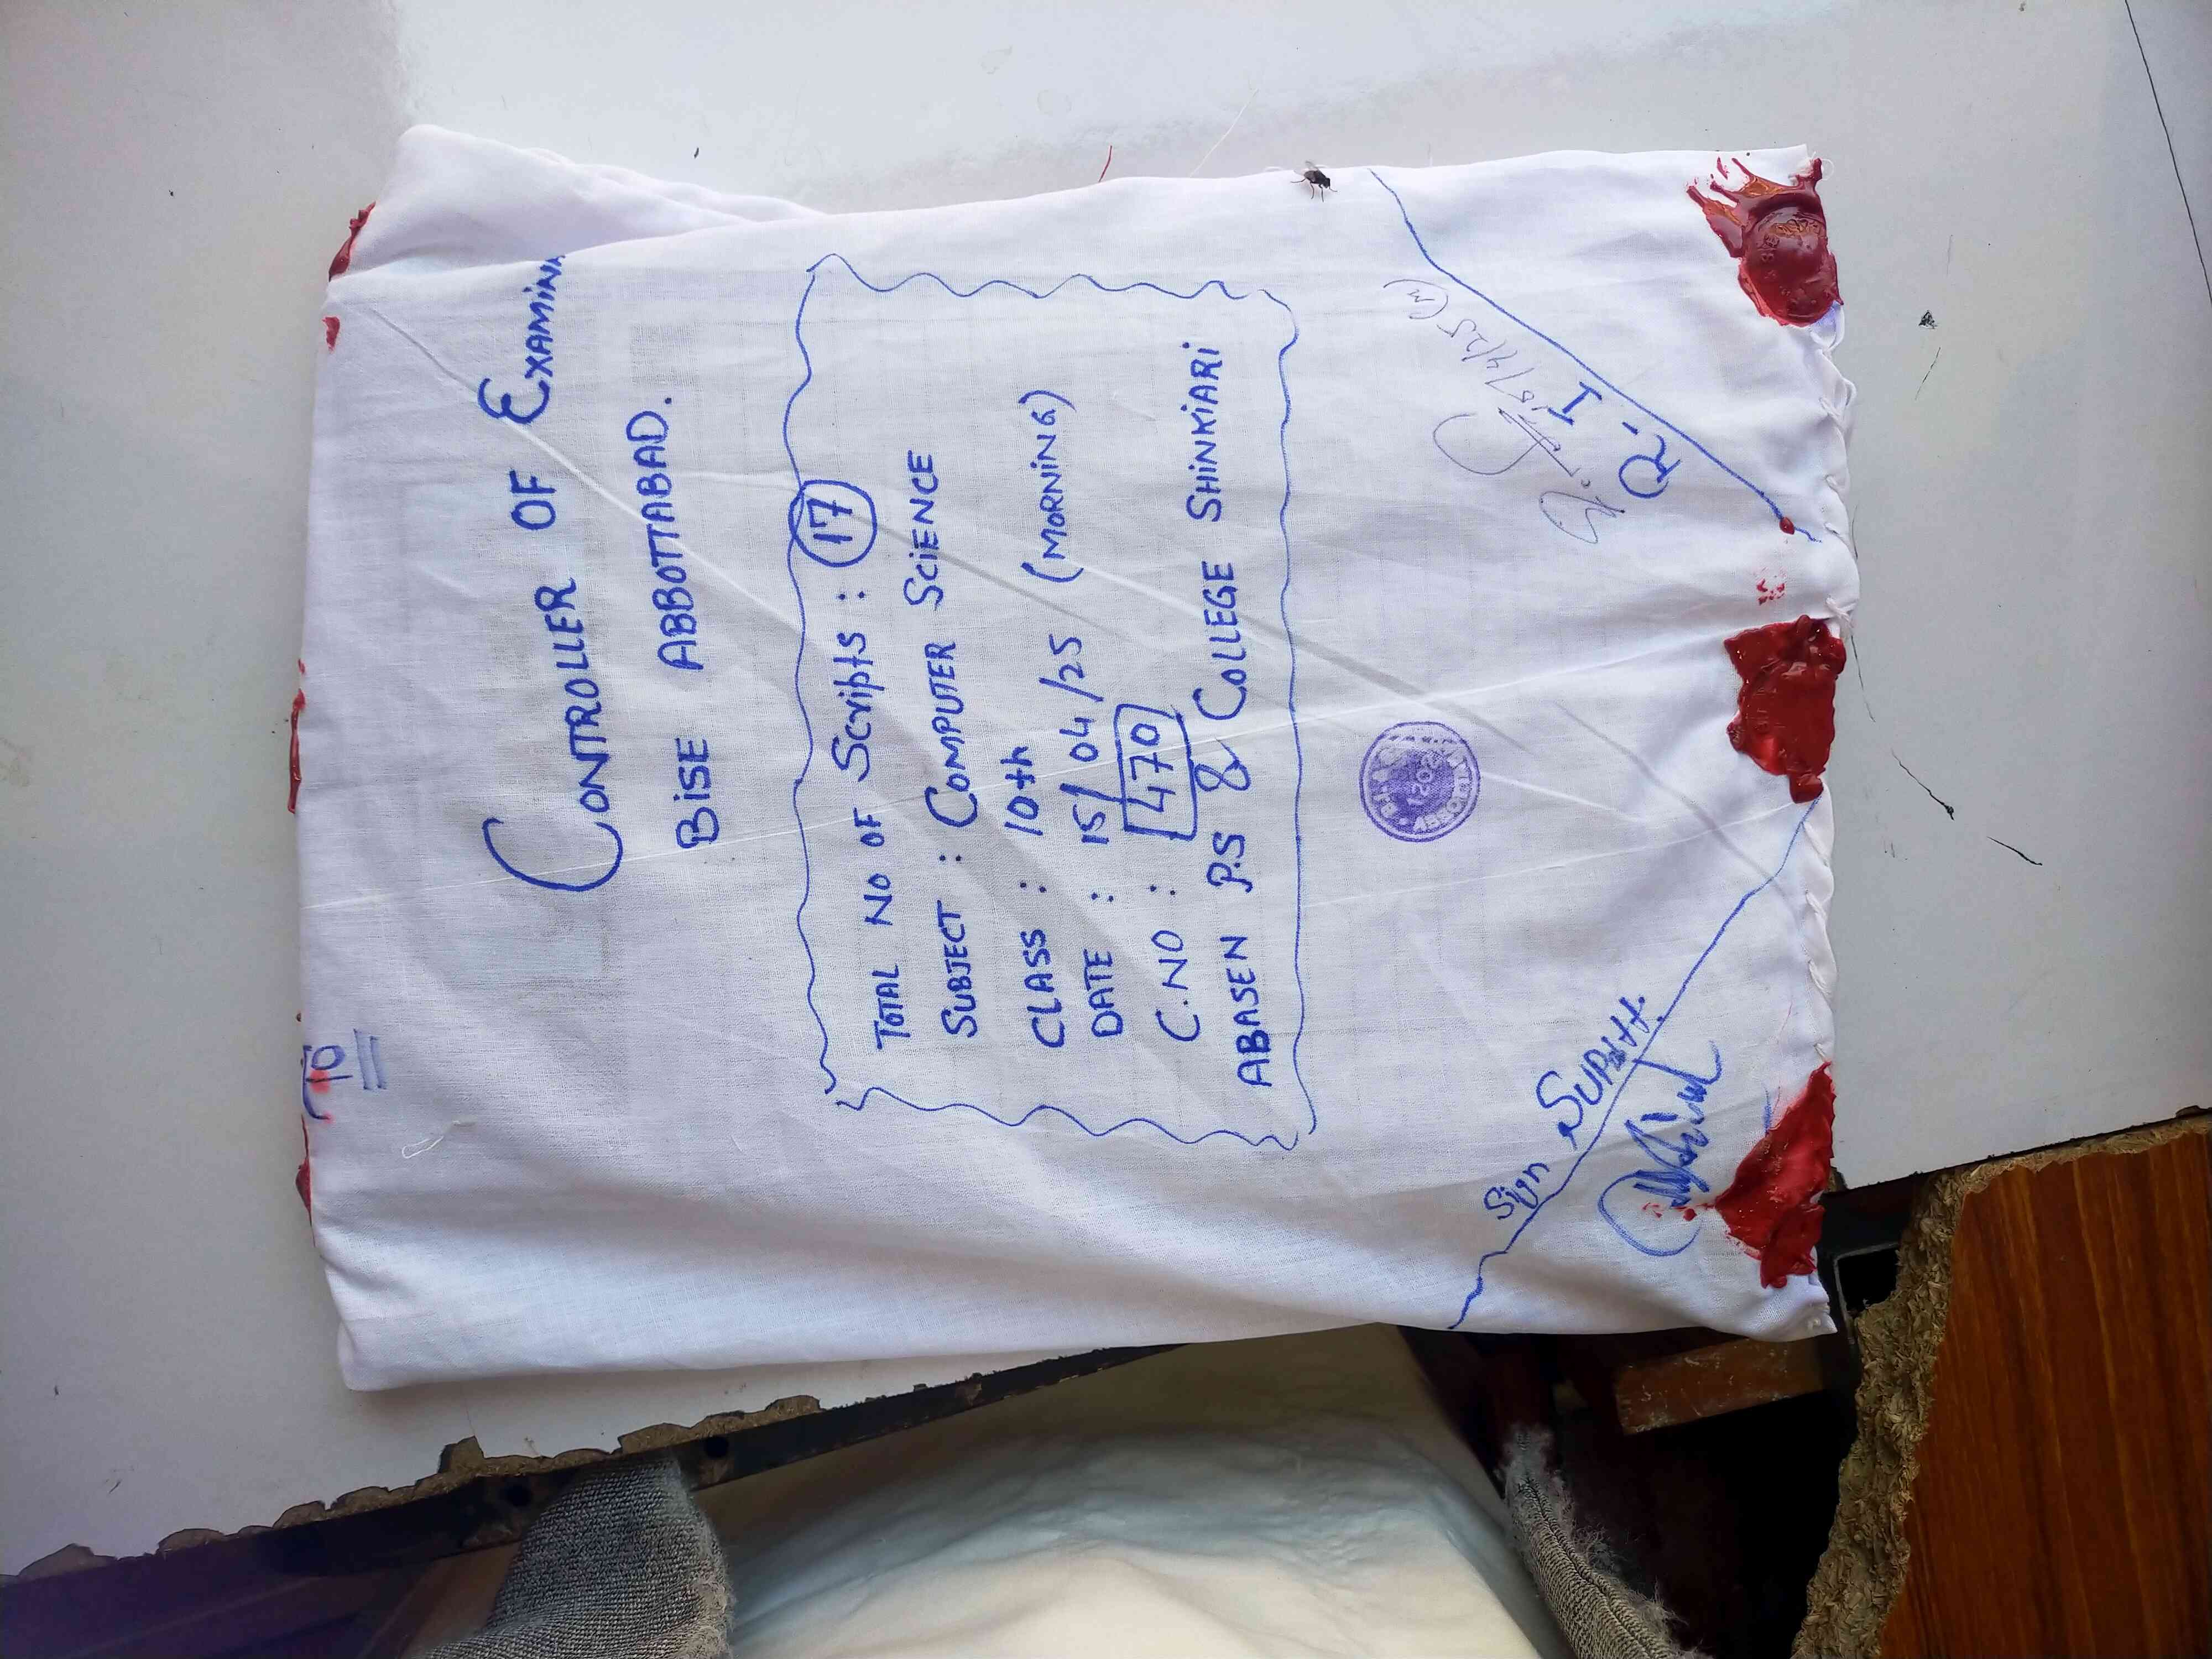 To
CONTROLLER OF EXAMINA
BISE ABBOTTABAD.
TOTAL NO OF Scripts : 17
SUBJECT : COMPUTER SCIENCE
CLASS : 10th
DATE : 15/04/25 (MORNING)
C.NO : 470
ABASEN P.S & COLLEGE SHINKIARI
Sign SUPdtt.
R.I
15/4/25 (M)